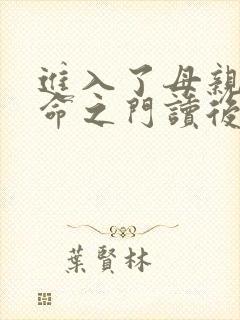 進入了母親
命之門讀後
葉賢林